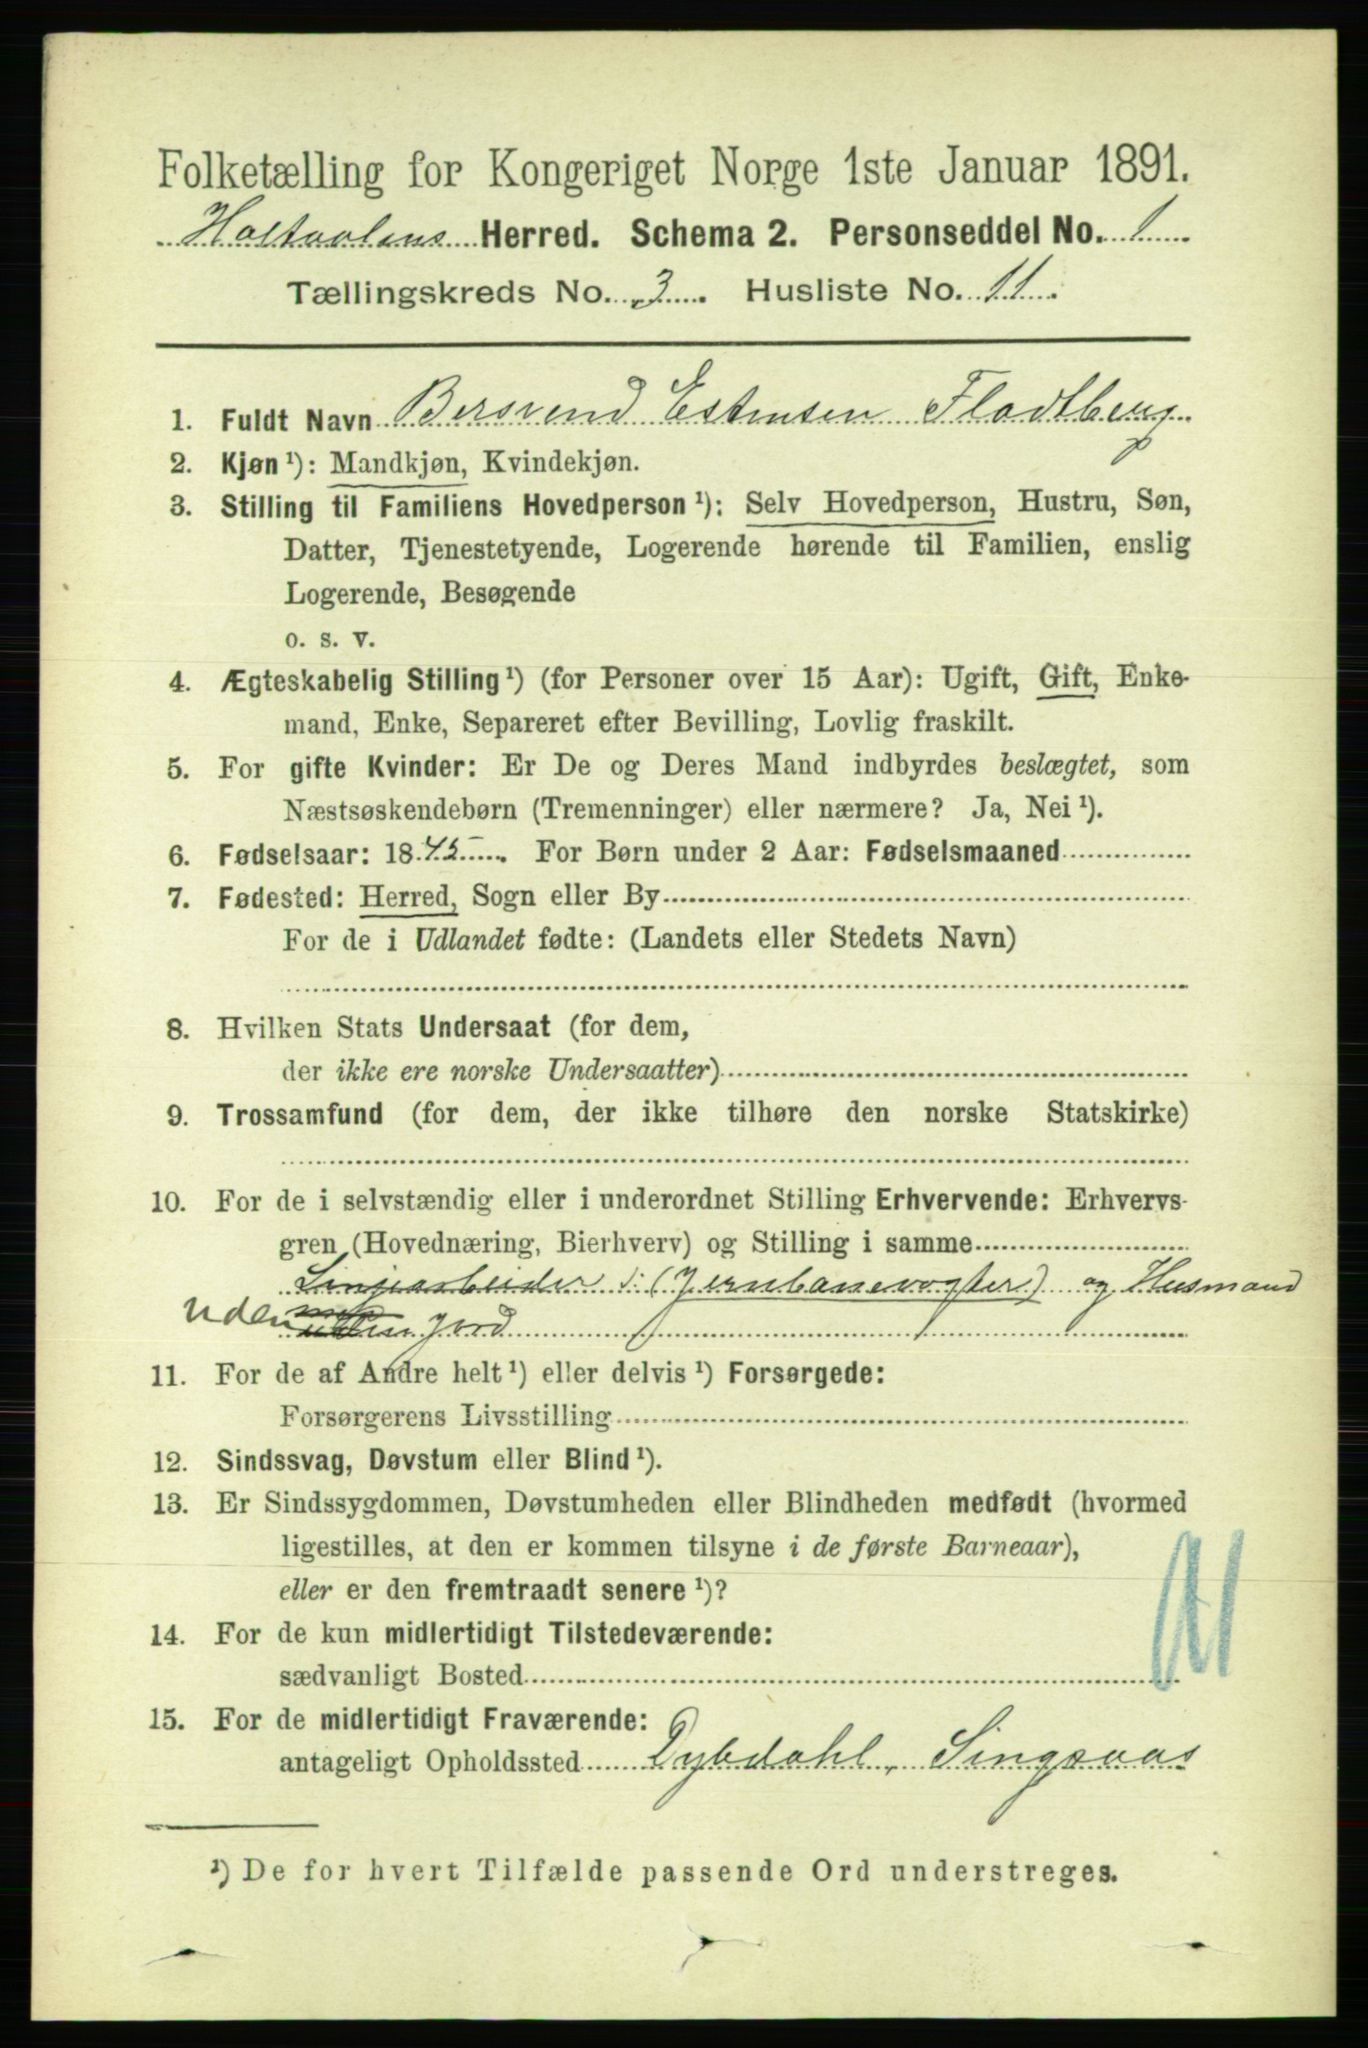 Folketælling for Kongeriget Norge 1ste Januar 1891.
Holtaalens Herred. Schema 2. Personseddel No. 1
Tællingskreds No. 3. Husliste No. 11.
1. Fuldt Navn Bersvend Estensen Flodtberg
2. Kjøn ¹): Mandkjøn, Kvindekjøn.
3. Stilling til Familiens Hovedperson ¹): Selv Hovedperson, Hustru, Søn,
Datter, Tjenestetyende, Logerende hørende til Familien, enslig
Logerende, Besøgende
o. s. v.
4. Ægteskabelig Stilling ¹) (for Personer over 15 Aar): Ugift, Gift, Enke-
mand, Enke, Separeret efter Bevilling, Lovlig fraskilt.
5. For gifte Kvinder: Er De og Deres Mand indbyrdes beslægtet, som
Næstsøskendebørn (Tremenninger) eller nærmere? Ja, Nei ¹).
6. Fødselsaar: 1845. For Børn under 2 Aar: Fødselsmaaned
7. Fødested: Herred, Sogn eller By
For de i Udlandet fødte: (Landets eller Stedets Navn)
8. Hvilken Stats Undersaat (for dem,
der ikke ere norske Undersaatter)
9. Trossamfund (for dem, der ikke tilhøre den norske Statskirke)
10. For de i selvstændig eller i underordnet Stilling Erhvervende: Erhvervs-
gren (Hovednæring, Bierhverv) og Stilling i samme
Linjearbeider ɔ: (Jernbanevogter) og Husmand
uden med uden Jord
11. For de af Andre helt ¹) eller delvis ¹) Forsørgede:
Forsørgerens Livsstilling
12. Sindssvag, Døvstum eller Blind ¹).
13. Er Sindssygdommen, Døvstumheden eller Blindheden medfødt (hvormed
ligestilles, at den er kommen tilsyne i de første Barneaar),
eller er den fremtraadt senere ¹)?
14. For de kun midlertidigt Tilstedeværende:
sædvanligt Bosted
15. For de midlertidigt Fraværende:
antageligt Opholdssted Dybdahl, Singsaas
¹) De for hvert Tilfælde passende Ord understreges.